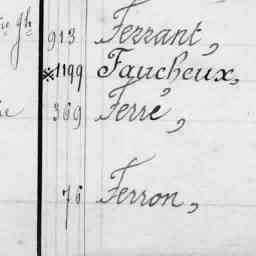 913 Ferrant,
※1199 Faucheux,
369 Ferré,
76 Ferron,